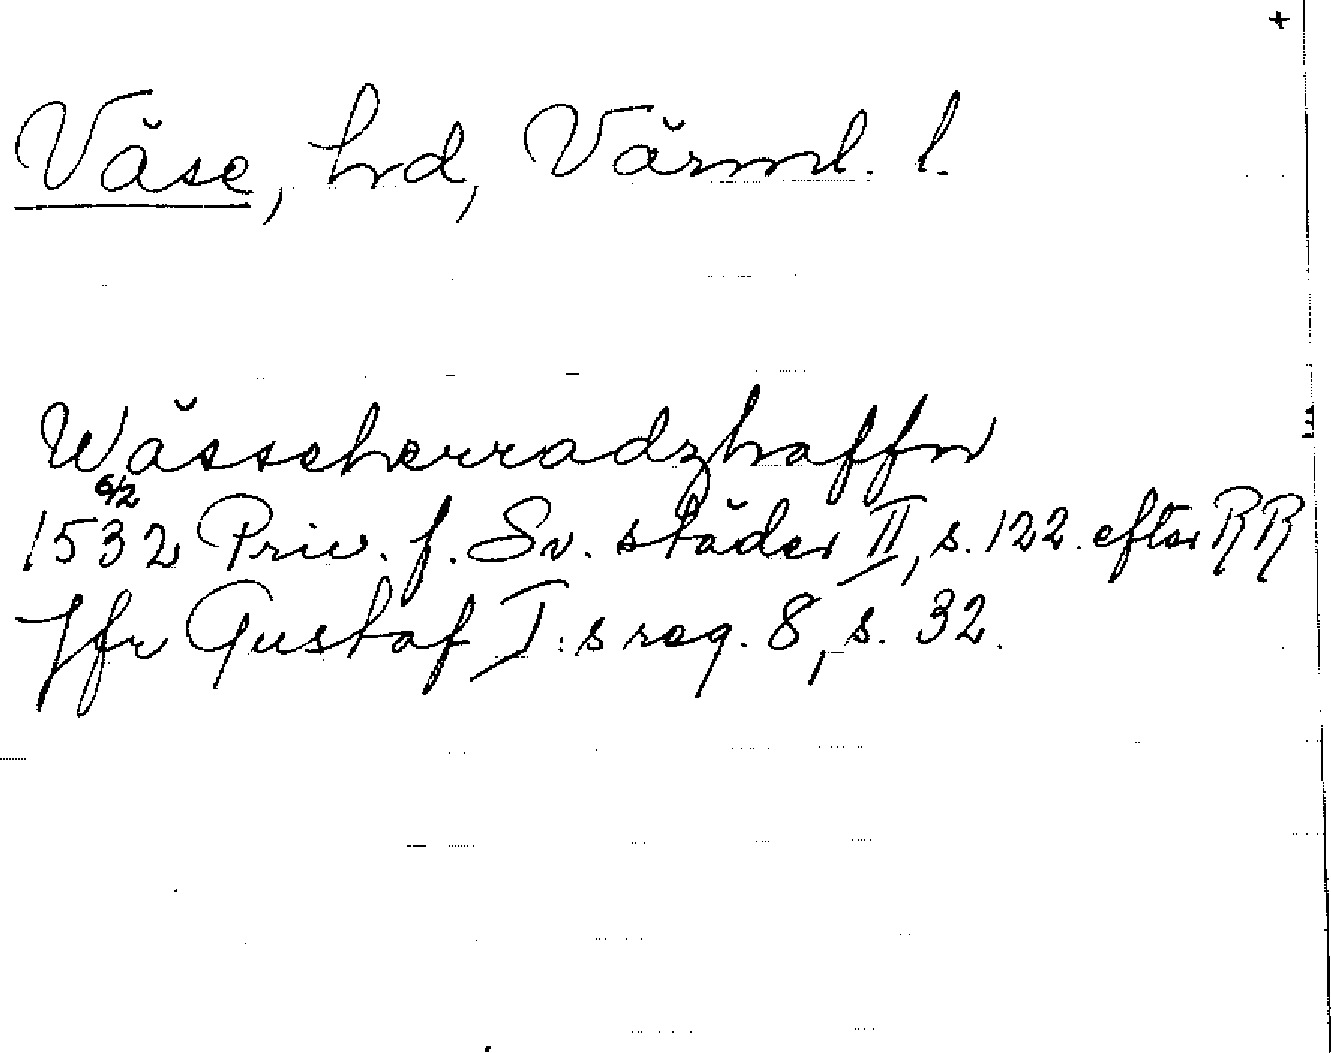 +
Väse, hrd, Värml. l.
Wässeherradzhaffn
6/2
1532 Priv. f. Sv. städer II, s. 122. efter RR
Jfr Gustaf I:s reg. 8, s. 32.